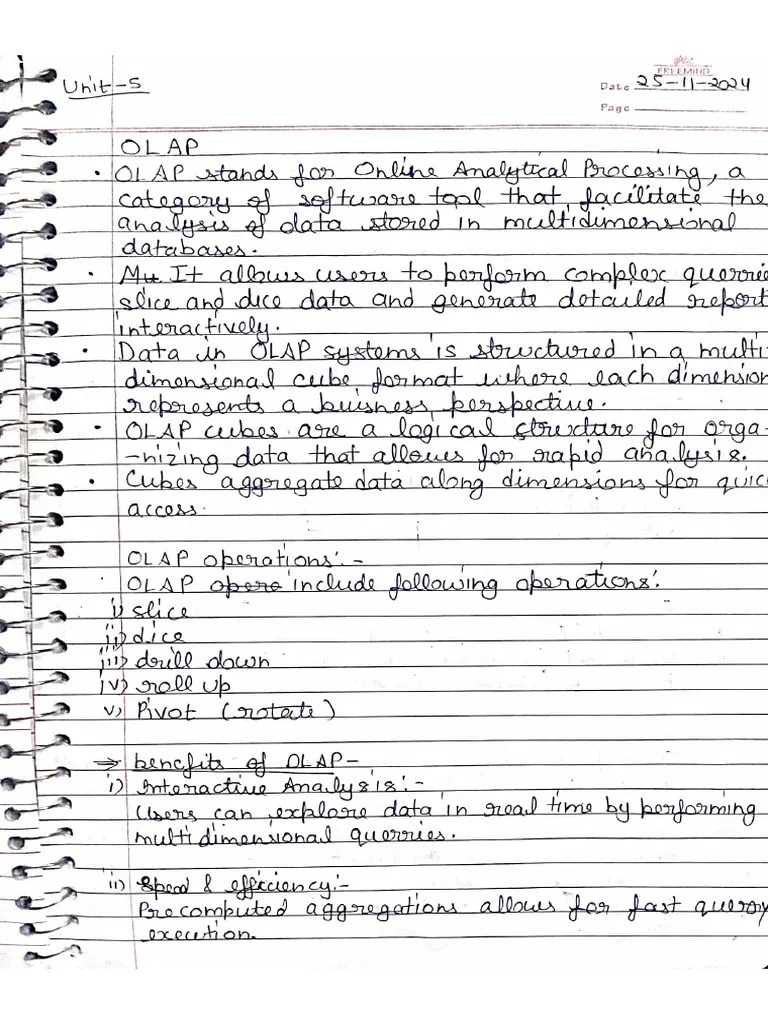 Unit-5
FREEMIND
Date 25-11-2024
Page
OLAP
• OLAP stands for Online Analytical Processing, a
category of software tool that facilitate the
analysis of data stored in multidimensional
databases.
• Mu It allows users to perform complex querrie
slice and dice data and generate detailed report
interactively.
• Data in OLAP systems is structured in a multi
dimensional cube format where each dimension
represents a buisness perspective.
• OLAP cubes are a logical structure for orga-
-nizing data that allows for rapid analysis.
• Cubes aggregate data along dimensions for quic
access.
OLAP operations:-
OLAP opera include following operations:
i) slice
ii) dice
iii) drill down
iv) roll up
v) Pivot (rotate)
→ benefits of OLAP-
i) Interactive Analysis:-
Users can explore data in real time by performing
multidimensional querries.
ii) Speed & efficiency:-
Precomputed aggregations allows for fast query
execution.